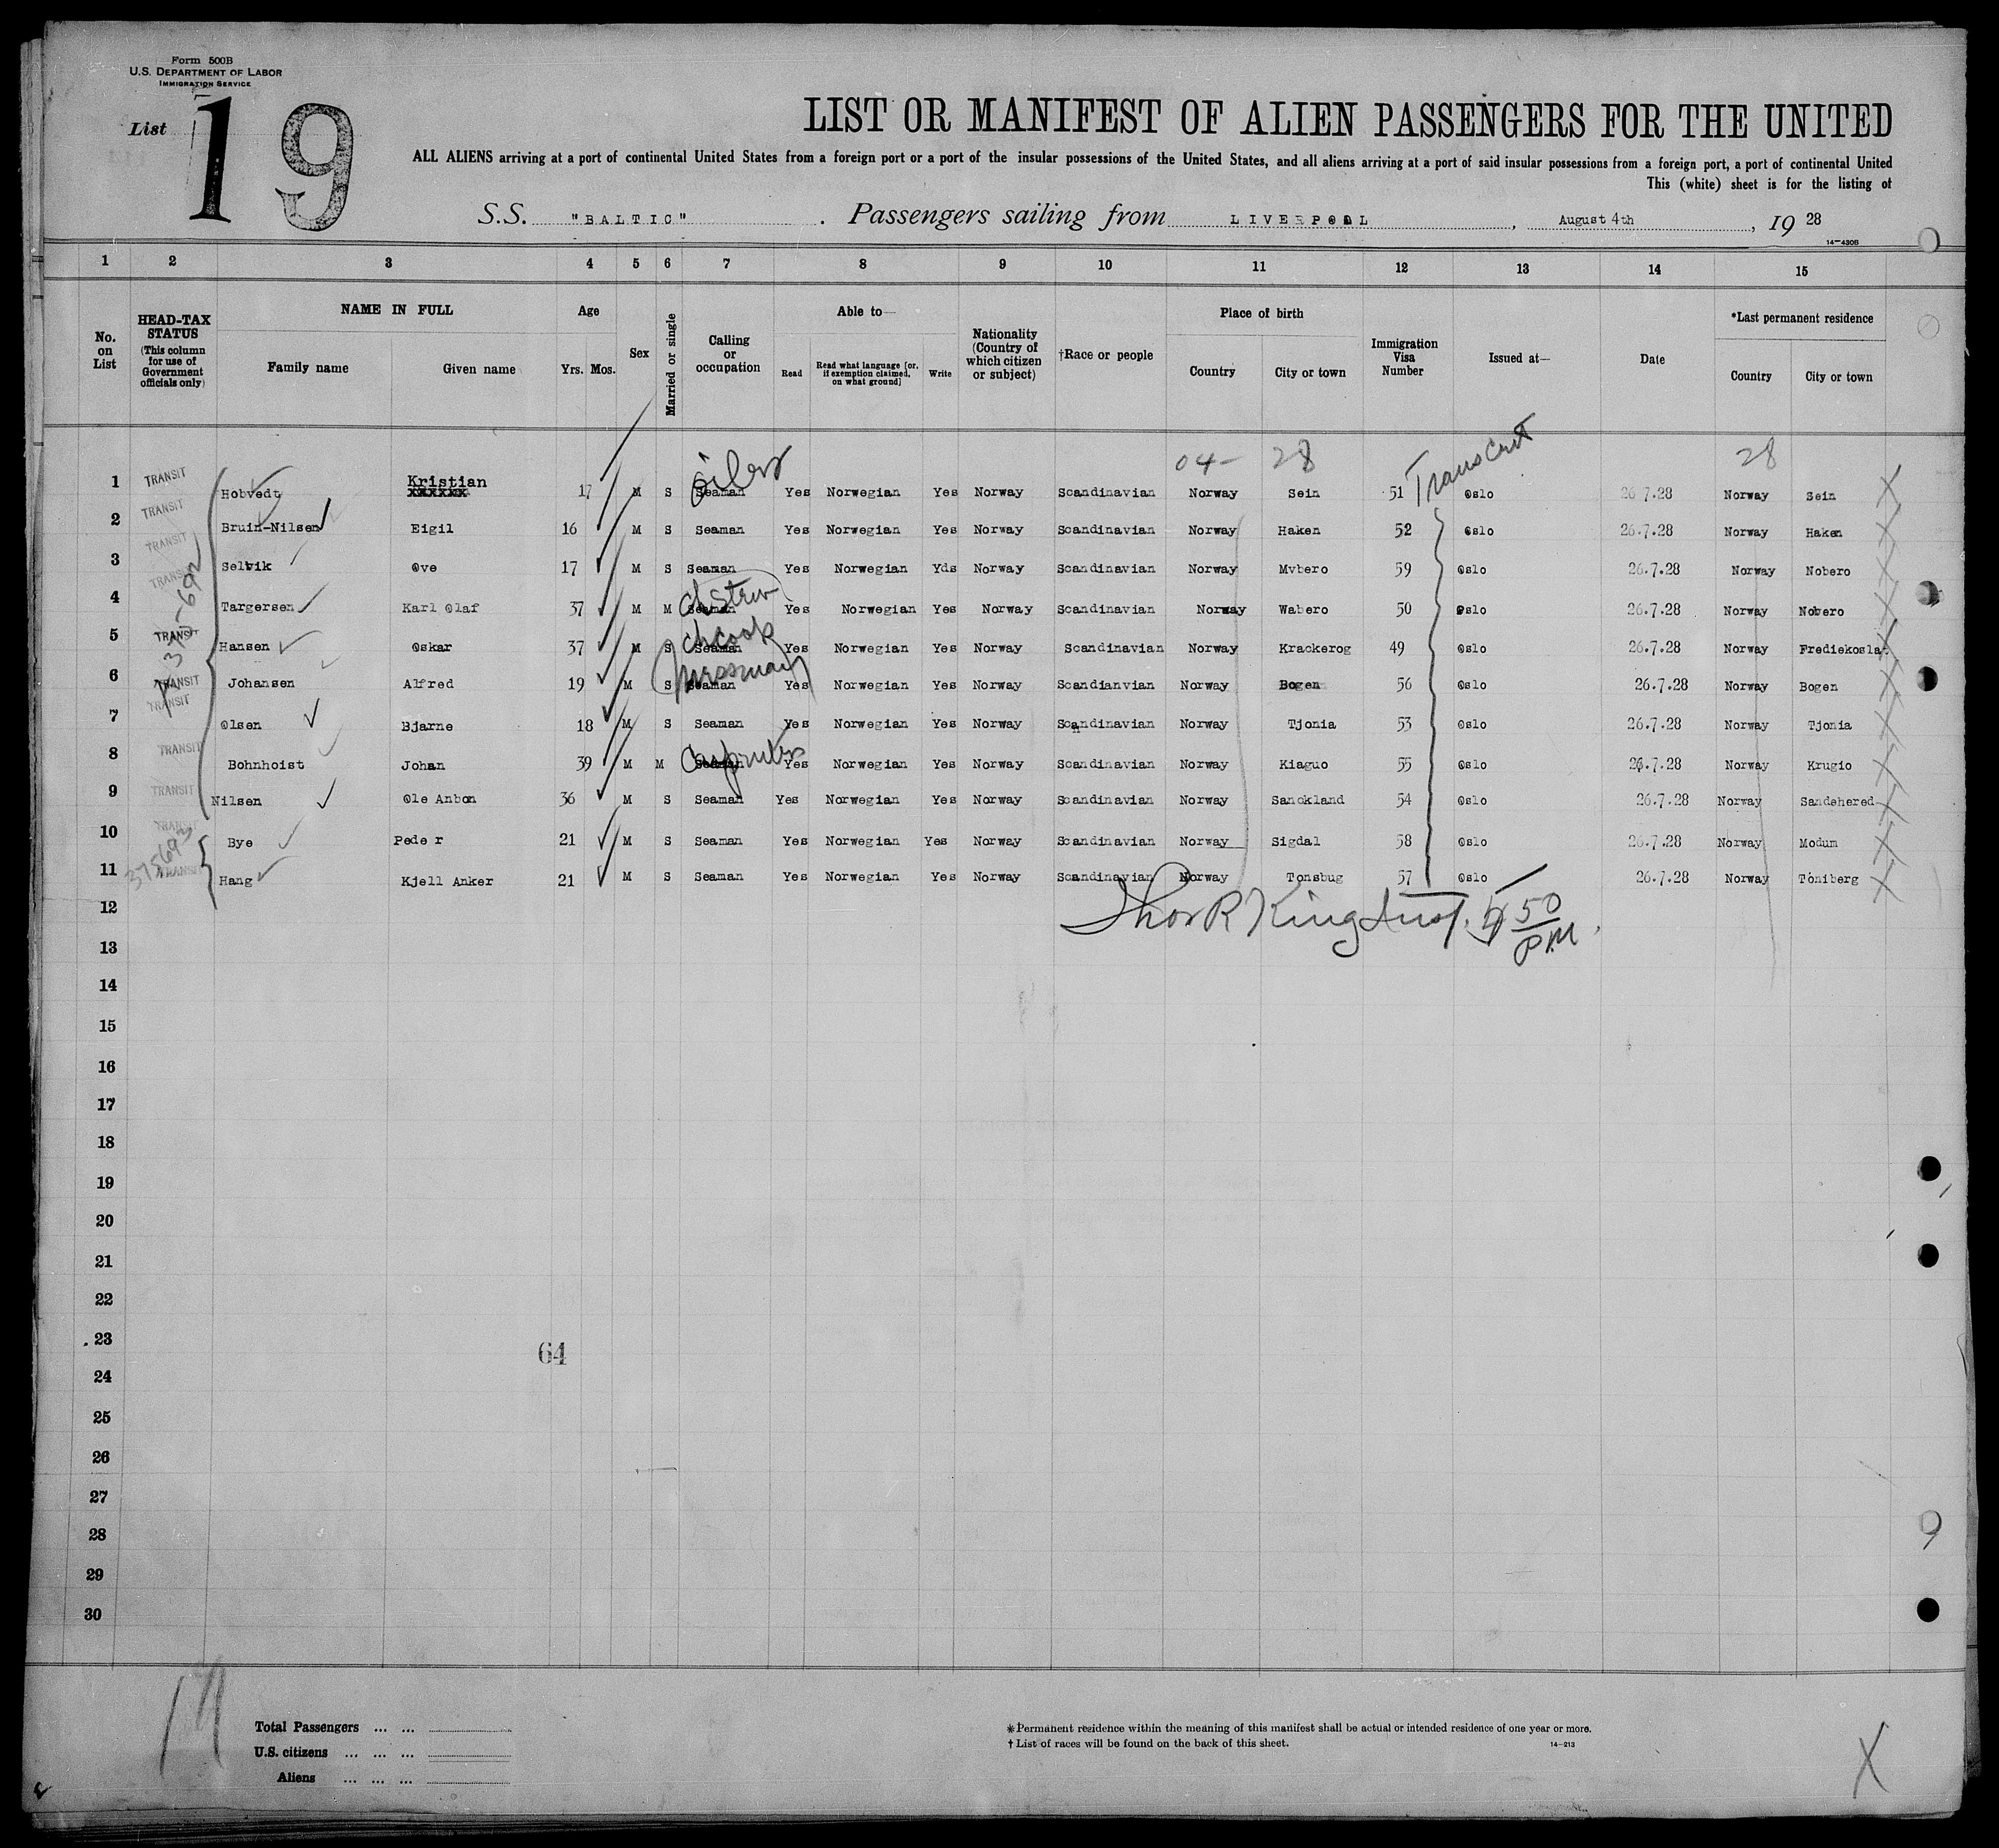 Form 500B
U.S. DEPARTMENT OF LABOR
IMMIGRATION SERVICE
List 19
LIST OR MANIFEST OF ALIEN PASSENGERS FOR THE UNITED
ALL ALIENS arriving at a port of continental United States from a foreign port or a port of the insular possessions of the United States, and all aliens arriving at a port of said insular possessions from a foreign port, a port of continental United
This (white) sheet is for the listing of
S.S. "BALTIC" . Passengers sailing from LIVERPOOL, August 4th, 1928
14-430B
1 2 3 4 5 6 7 8 9 10 11 12 13 14 15
No. on List
HEAD-TAX STATUS (This column for use of Government officials only)
NAME IN FULL
Family name Given name
Age
Yrs. Mos.
Sex
Married or single
Calling or occupation
Able to—
Read
Read what language [or, if exemption claimed, on what ground]
Write
Nationality (Country of which citizen or subject)
†Race or people
Place of birth
Country City or town
Immigration Visa Number
Issued at—
Date
*Last permanent residence
Country City or town
04- 28 Transcert 28
1 TRANSIT Hobvedt Kristian xxxxxx 17 M S Seaman oiler Yes Norwegian Yes Norway Scandinavian Norway Sein 51 Oslo 26 7.28 Norway Sein X
2 TRANSIT Bruin-Nilsen Eigil 16 M S Seaman Yes Norwegian Yes Norway Scandinavian Norway Haken 52 Oslo 26.7.28 Norway Haken X
3 TRANSIT Selvik Ove 17 M S Seaman Yes Norwegian Yds Norway Scandinavian Norway Mvbero 59 Oslo 26.7.28 Norway Nobero X
4 TRANSIT Targersen Karl Olaf 37 M M Seaman Ch Stew Yes Norwegian Yes Norway Scandinavian Norway Wabero 50 Oslo 26.7.28 Norway Nobero X
5 TRANSIT Hansen Oskar 37 M S Seaman Ch cook Yes Norwegian Yes Norway Scandinavian Norway Krackerog 49 Oslo 26.7.28 Norway Frediekoslat X
6 TRANSIT Johansen Alfred 19 M S Seaman messman Yes Norwegian Yes Norway Scandianvian Norway Bogen 56 Oslo 26.7.28 Norway Bogen X
7 TRANSIT Olsen Bjarne 18 M S Seaman Yes Norwegian Yes Norway Scandinavian Norway Tjonia 53 Oslo 26.7.28 Norway Tjonia X
8 TRANSIT Bohnhoist Johan 39 M M Seaman Carpenter Yes Norwegian Yes Norway Scandinavian Norway Kiaguo 55 Oslo 26.7.28 Norway Krugio X
9 TRANSIT Nilsen Ole Anbon 36 M S Seaman Yes Norwegian Yes Norway Scandinavian Norway Sanckland 54 Oslo 26.7.28 Norway Sandehered X
10 TRANSIT Bye Pede r 21 M S Seaman Yes Norwegian Yes Norway Scandinavian Norway Sigdal 58 Oslo 26.7.28 Norway Modum X
11 TRANSIT Hang Kjell Anker 21 M S Seaman Yes Norwegian Yes Norway Scandinavian Norway Tonsbug 57 Oslo 26.7.28 Norway Toniberg X
12
Thos R King Insp. 5 50 PM
13
14
15
16
17
18
19
20
21
22
23
64
24
25
26
27
28
29
30
Total Passengers ... ...
U.S. citizens ... ... ...
Aliens ... ... ...
*Permanent residence within the meaning of this manifest shall be actual or intended residence of one year or more.
† List of races will be found on the back of this sheet.
14-213
X